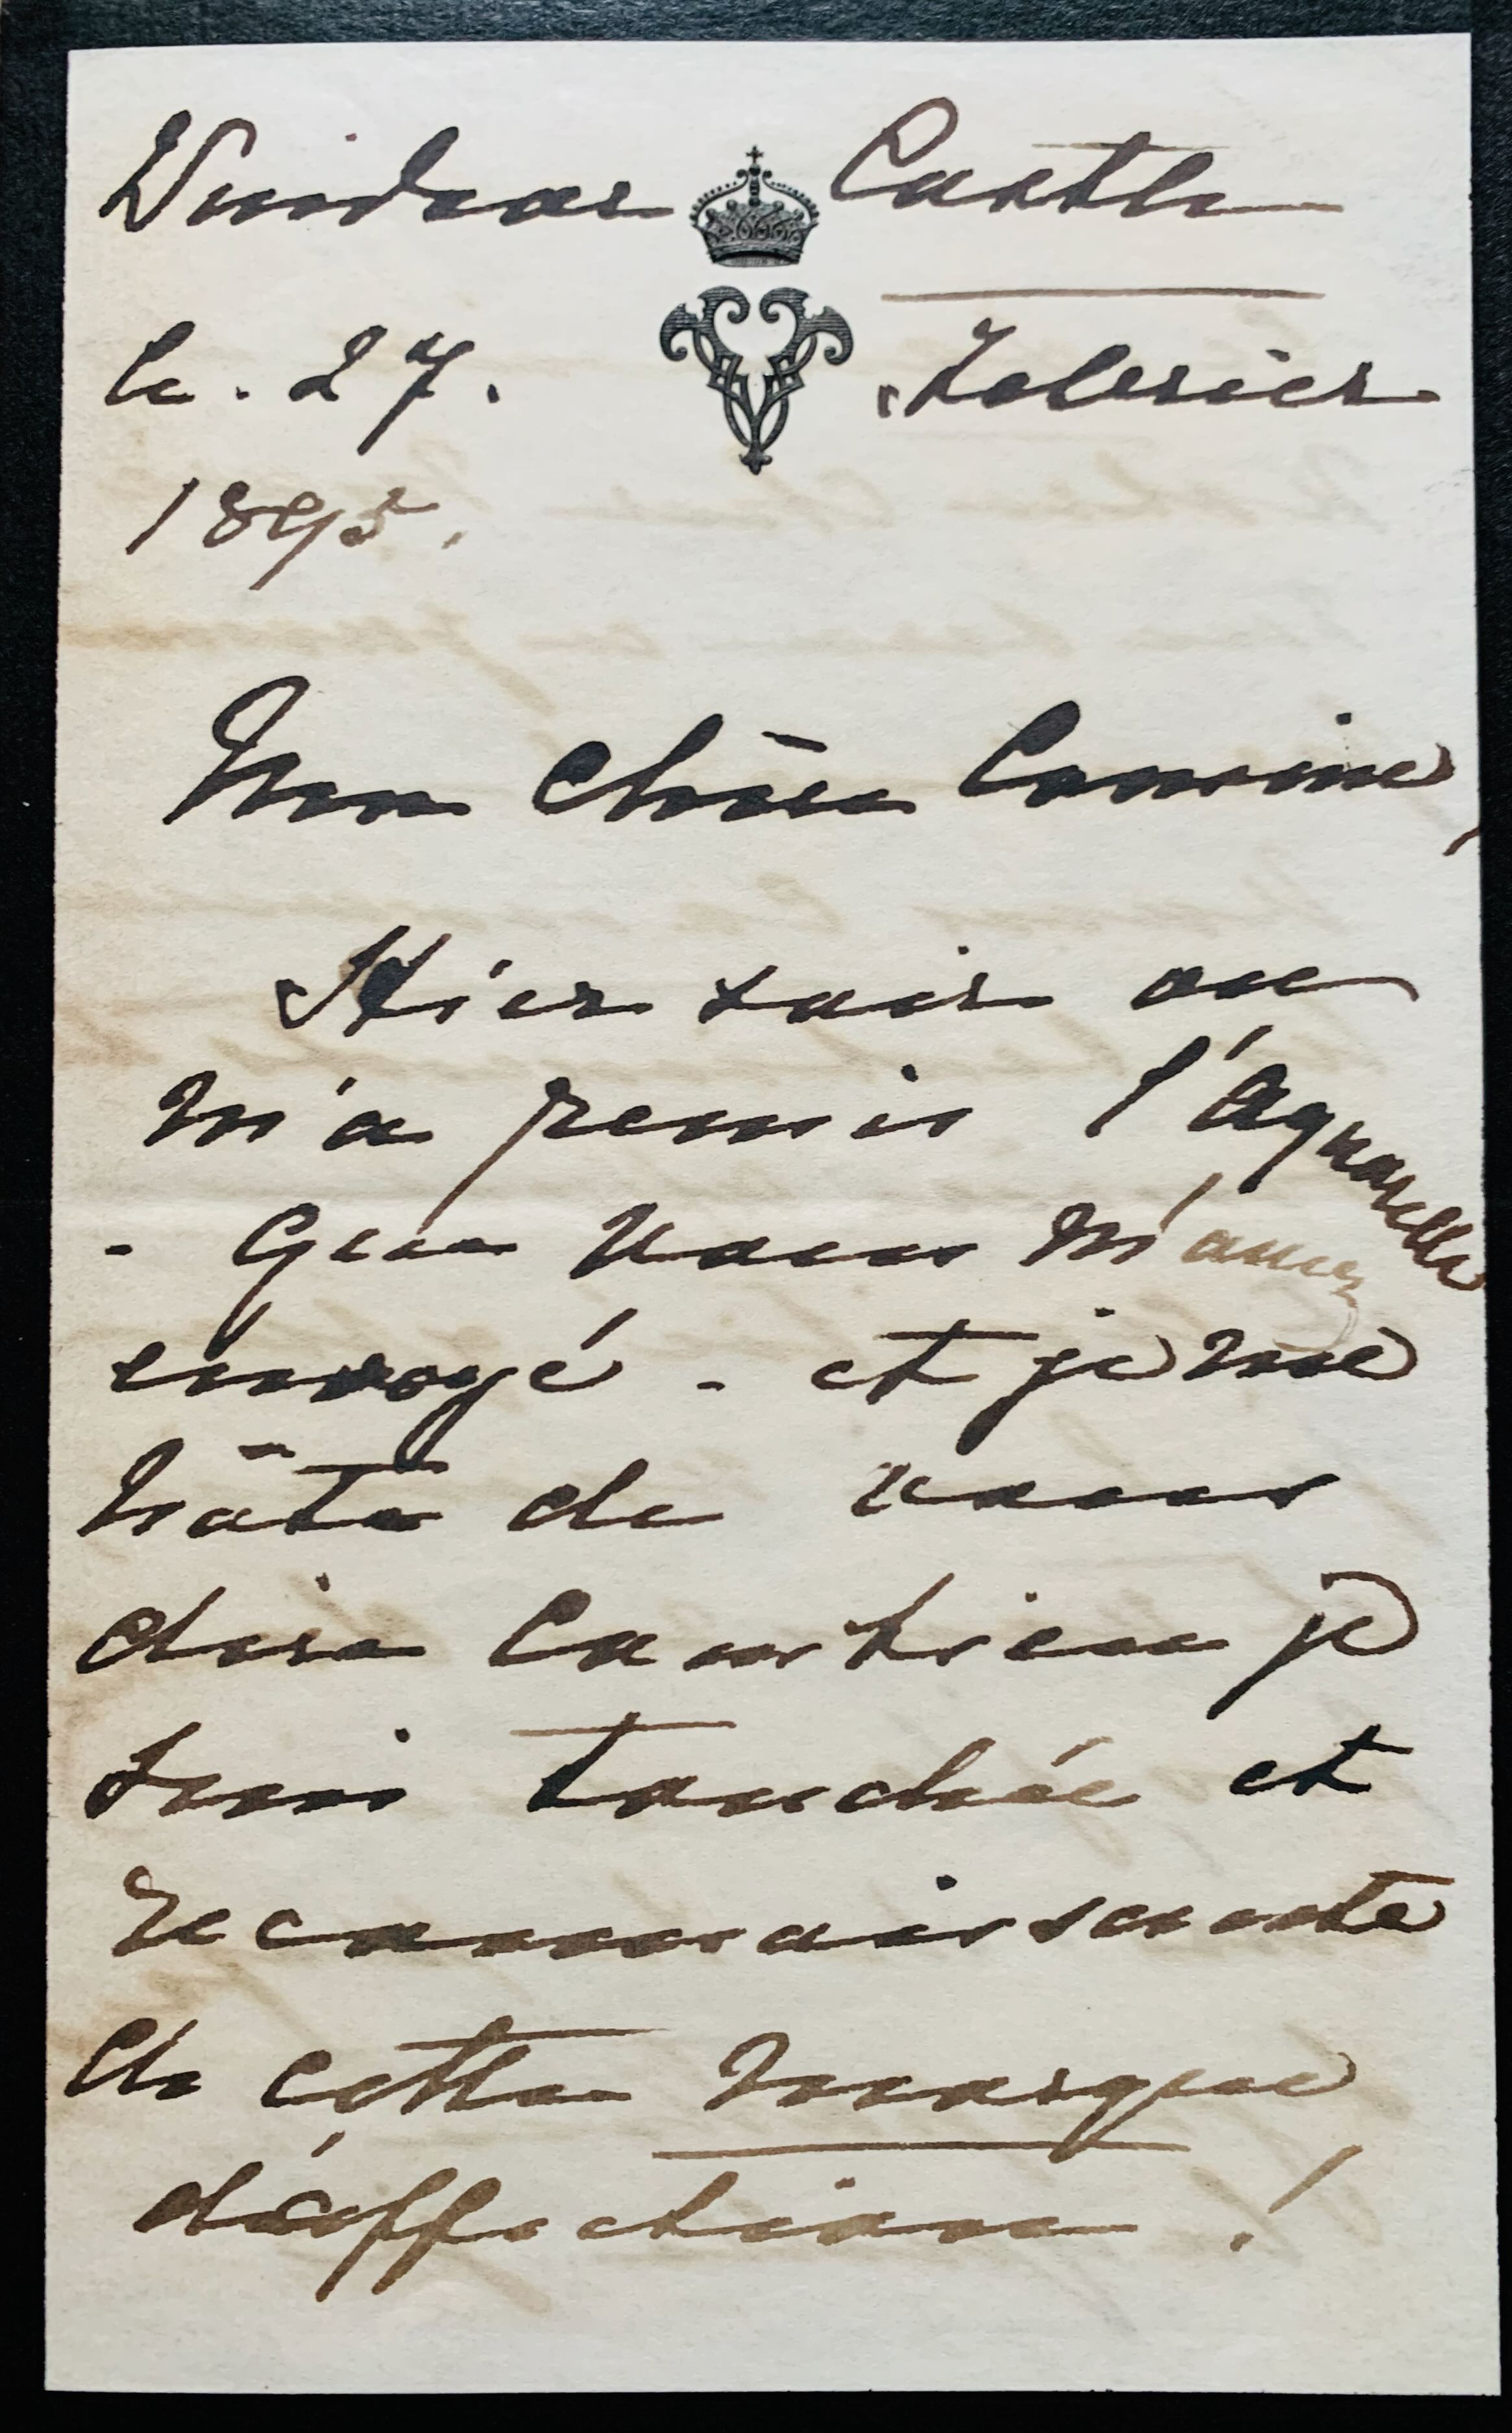 Windsor Castle
le. 27. Février
1895.
Mon Chère Cousine,
Hier soir on
m'a remis l'Aquarelle
- que vous m'avez
envoyé - et je me
hâte de vous
dire combien je
suis touchée et
reconnaissante
de cette marque
d'affection !